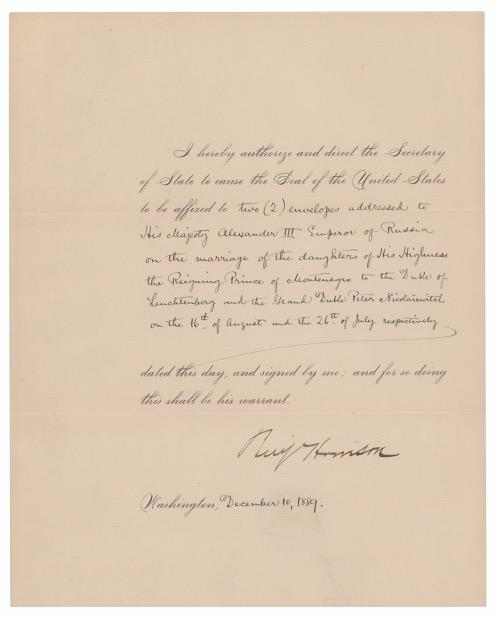 I hereby authorize and direct the Secretary
of State to cause the Seal of the United States
to be affixed to two (2) envelopes addressed to
His Majesty Alexander III Emperor of Russia
on the marriage of the daughters of His Highness
the Reigning Prince of Montenegro to the Duke of
Leuchtenberg and the Grand Duke Peter Nicolaievitch
on the 16th. of August and the 26th. of July respectively
dated this day, and signed by me; and for so doing
this shall be his warrant.
Benj Harrison
Washington, December 10, 1889.